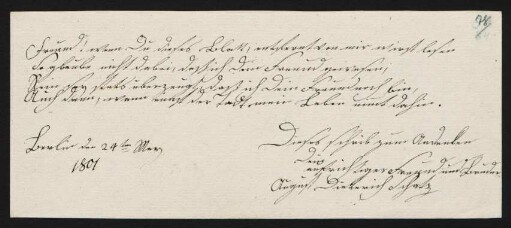 Freund! wenn Du dieses Blatt, entfernt von mir wirst lesen
So glaube nicht dabei, daß ich dein Freund gewesen,
Nein sey stets überzeugt, daß ich dein Freund noch bin,
Auch dann, wenn mich der Todt, mein Leben nimt dahin.
Berlin den 24ten May
1801
Dieses schrieb zum Andenken
Dein
aufrichtiger Freund und Bruder
August Dieterich Schatz